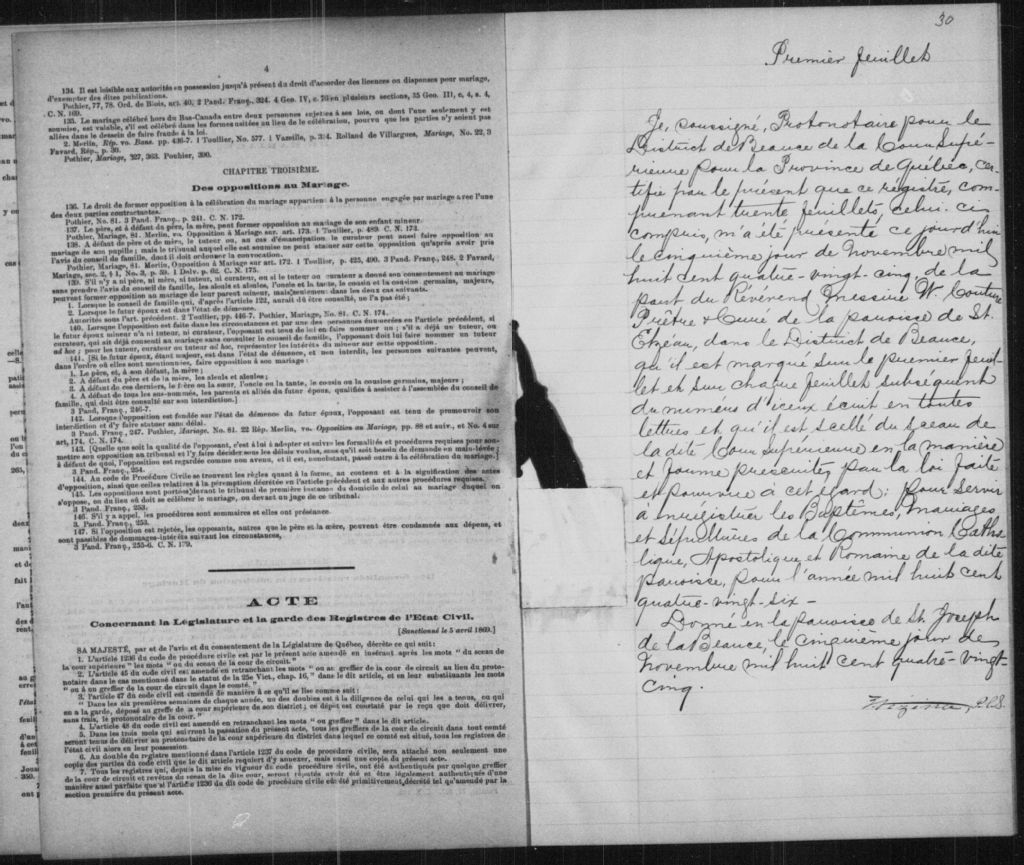 4
134. Il est loisible aux autorités en possession jusqu'à présent du droit d'accorder des licences ou dispenses pour mariage,
d'exempter des dites publications.
Pothier, 77, 78. Ord. de Blois, art. 40, 2 Pand. Franç., 324. 4 Geo. IV, c. 76 en plusieurs sections, 35 Geo. III, c, 4, s. 4,
C. N. 169.
135. Le mariage célébré hors du Bas-Canada entre deux personnes sujettes à ses lois, ou dont l'une seulement y est
soumise, est valable, s'il est célébré dans les formes usitées au lieu de la célébration, pourvu que les parties n'y soient pas
allées dans le dessein de faire fraude à la loi.
2. Merlin, Rép. vo. Bans. pp. 436-7. 1 Toullier, No. 577. 1 Vazille, pp. 314. Rolland de Villargues, Mariage, No. 22, 3
Favard, Rép., p. 39.
Pothier, Mariage, 327, 363. Pouhier, 390.
CHAPITRE TROISIÈME.
Des oppositions au Mariage.
136. Le droit de former opposition à la célébration du mariage appartient à la personne engagée par mariage avec l'une
des deux parties contractantes.
Pothier, No. 81. 3 Pand. Franç., p. 241. C. N. 172.
137. Le père, et à défaut du père, la mère, peut former opposition au mariage de son enfant mineur.
Pothier, Mariage, 81. Merlin, vo. Opposition à Mariage sur. art. 173. 1 Toullier, p. 489. C. N. 173.
138. A défaut de père et de mère, le tuteur ou, au cas d'émancipation le curateur peut aussi faire opposition au
mariage de son pupille; mais le tribunal auquel elle est soumise ne peut statuer sur cette opposition qu'après avoir pris
l'avis du conseil de famille, dont il doit ordonner la convocation.
Pothier, Mariage, 81. Merlin, Opposition à Mariage sur art. 172. 1 Toullier, p. 425, 490. 3 Pand. Franç., 248. 2 Favard,
Mariage, sec. 2, § 1, No. 3, p. 59. 1 Delv. p. 62. C. N. 175.
139. S'il n'y a ni père, ni mère, ni tuteur, ni curateur, ou si le tuteur ou curateur a donné son consentement au mariage
sans prendre l'avis du conseil de famille, les aïeuls et aïeules, l'oncle et la tante, le cousin et la cousine germains, majeurs,
peuvent former opposition au mariage de leur parent mineur, mais seulement dans les deux cas suivants.
1. Lorsque le conseil de famille qui, d'après l'article 122, aurait dû être consulté, ne l'a pas été;
2. Lorsque le futur époux est dans l'état de démence.
Autorités sous l'art. précédent. 2 Toullier, pp. 446-7. Pothier, Mariage, No. 81. C. N. 174.
140. Lorsque l'opposition est faite dans les circonstances et par une des personnes énumérées en l'article précédent, si
le futur époux mineur n'a ni tuteur, ni curateur, l'opposant est tenu de lui en faire nommer un; s'il a déjà un tuteur, ou
curateur, qui ait déjà consenti au mariage sans consulter le conseil de famille, l'opposant doit lui faire nommer un tuteur
ad hoc; pour les tuteur, curateur ou tuteur ad hoc, représenter les intérêts du mineur sur cette opposition.
141. [Si le futur époux, étant majeur, est dans l'état de démence, et non interdit, les personnes suivantes peuvent,
dans l'ordre où elles sont mentionnées, faire opposition à son mariage:
1. Le père, et, à son défaut, la mère;
2. A défaut du père et de la mère, les aïeuls et aïeules;
3. A défaut de ces derniers, le frère ou la sœur, l'oncle ou la tante, le cousin ou la cousine germains, majeurs;
4. A défaut de tous les sus-nommés, les parents et alliés du futur époux, qualifiés à assister à l'assemblée du conseil de
famille, qui doit être consulté sur son interdiction.]
3 Pand. Franç., 246-7.
142. Lorsque l'opposition est fondée sur l'état de démence du futur époux, l'opposant est tenu de promouvoir son
interdiction et d'y faire statuer sans délai.
3 Pand. Franç., 247. Pothier, Mariage. No. 81. 22 Rép. Merlin, vo. Opposition au Mariage, pp. 88 et suiv., et No. 4 sur
art, 174, C. N. 174.
143. [Quelle que soit la qualité de l'opposant, c'est à lui à adopter et suivre les formalités et procédures requises pour sou-
mettre son opposition au tribunal et l'y faire décider sous les délais voulus, sans qu'il soit besoin de demande en main-levée;
à défaut de quoi, l'opposition est regardée comme non avenu, et il est, nonobstant, passé outre à la célébration du mariage.]
3 Pand. Franç., 254.
144. Au code de Procédure Civile se trouvent les règles quant à la forme, au contenu et à la signification des actes
d'opposition, ainsi que celles relatives à la péremption décrétée en l'article précédent et aux autres procédures requises.
145. Les oppositions sont portées devant le tribunal de première instance du domicile de celui au mariage duquel on
s'oppose, ou du lieu où doit se célébrer le mariage, ou devant un juge de ce tribunal.
3 Pand. Franç., 253.
146. S'il y a appel, les procédures sont sommaires et elles ont préséance.
3. Pand. Franç., 253.
147. Si l'opposition est rejetée, les opposants, autres que le père et la mère, peuvent être condamnés aux dépens, et
sont passibles de dommages-intérêts suivant les circonstances,
3 Pand. Franç., 255-6. C. N. 179.
ACTE
Concernant la Législature et la garde des Registres de l'Etat Civil.
[Sanctionné le 5 avril 1869.]
SA MAJESTÉ, par et de l'avis et du consentement de la Législature de Québec, décrète ce qui suit:
1. L'article 1236 du code de procédure civile est par le présent acte amendé en insérant après les mots "du sceau de
la cour supérieure" les mots "ou du sceau de la cour de circuit."
2. L'article 45 du code civil est amendé en retranchant les mots "ou au greffier de la cour de circuit au lieu du proto-
notaire dans le cas mentionné dans le statut de la 25e Vict., chap. 16," dans le dit article, et en leur substituant les mots
"ou à un greffier de la cour de circuit dans le comté."
3. l'article 47 du code civil est amendé à ce qu'il se lise comme suit:
"Dans les six premières semaines de chaque année, un des doubles est à la diligence de celui qui les a tenus, ou qui
en a la garde, déposé au greffe de la cour supérieure de son district; ce dépôt est constaté par le reçu que doit délivrer,
sans frais, le protonotaire de la cour."
4. L'article 48 du code civil est amendé en retranchant les mots "ou greffier" dans le dit article.
5. Dans les trois mois qui suivront la passation du présent acte, tous les greffiers de la cour de circuit dans tout comté
seront tenus de délivrer au protonotaire de la cour supérieure du district dans lequel ce comté est situé, tous les registres de
l'état civil alors en leur possession.
6. Au double du registre mentionné dans l'article 1237 du code de procédure civile, sera attaché non seulement une
copie des parties du code civil que le dit article requiert d'y annexer, mais aussi une copie du présent acte.
7. Tous les registres qui, depuis la mise en vigueur du code procédure civile, ont été authentiqués par quelque greffier
de la cour de circuit et revêtus du sceau de la dite cour, seront réputés avoir été et être légalement authentiqués d'une
manière aussi parfaite que si l'article 1236 du dit code de procédure civile eût été primitivement décrété tel qu'amendé par la
section première du présent acte.
30
Premier feuillet
Je, soussigné, Protonotaire pour le
District de Beauce de la Cour Supé-
rieure pour la Province de Québec, cer-
tifie par le présent que ce registre, com-
prenant trente feuillets, celui-ci
compris, m'a été présenté ce jourd'hui
le cinquième jour de Novembre mil
huit cent quatre-vingt-cinq de la
part du Révérend Messire W. Couture
Prêtre & Curé de la paroisse de St.
Elzéar, dans le District de Beauce,
qu'il est marqué sur le premier feuil-
let et sur chaque feuillet subséquent
du numéro d'iceux écrit en toutes
lettres et qu'il est scellé du sceau de
la dite Cour Supérieure en la manière
et forme prescrites par la loi faite
et pourvue à cet égard: pour servir
à enregistrer les Baptêmes, mariages
et Sépultures de la Communion Catho
lique, Apostolique et Romaine de la dite
paroisse, pour l'année mil huit cent
quatre-vingt-six -
Donné en la paroisse de St. Joseph
de la Beauce, le cinquième jour de
Novembre mil huit cent quatre-vingt-
cinq.
Vézina, P.C.S.